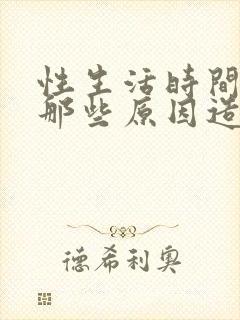 性生活時間
那些原因造
德希利奥